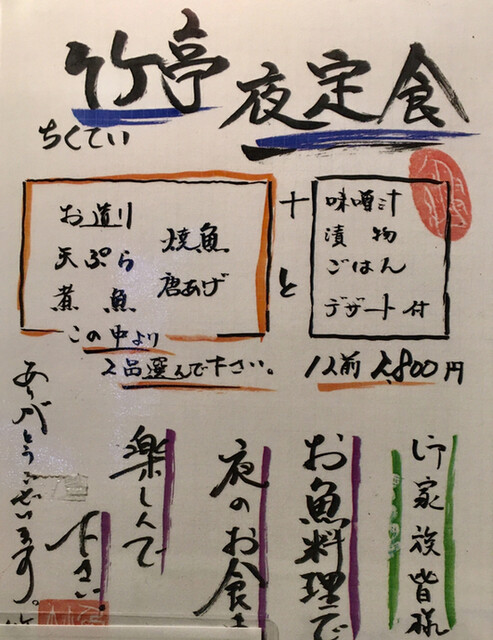 竹亭 夜定食
ちくてい
お造り 焼魚
天ぷら 唐あげ
煮魚
この中より
2品選んで下さい。
十
と
味噌汁
漬物
ごはん
デザート付
1人前 2,800円
御家族皆様
お魚料理で
夜のお食
楽しんで
下さい。
ありがとうございます。